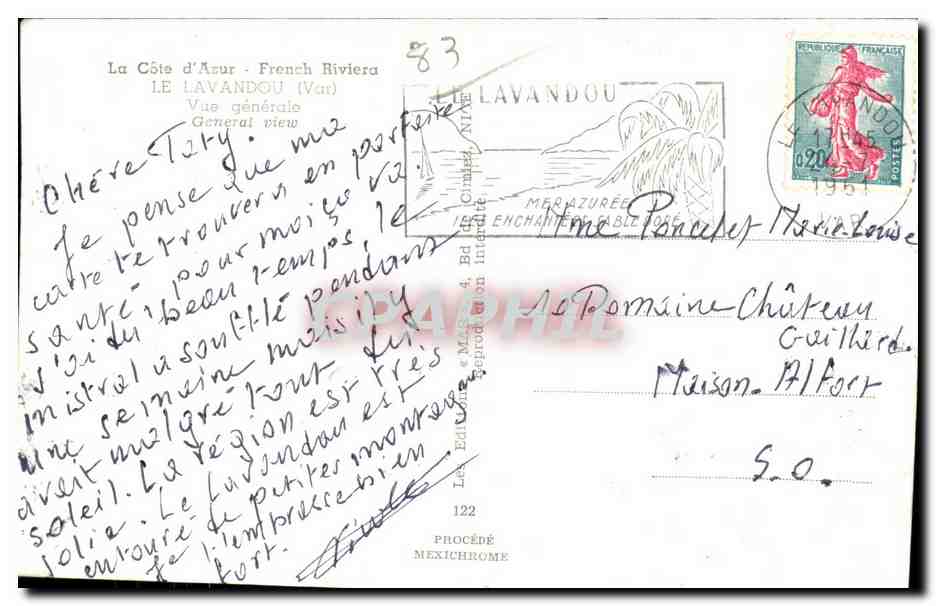 83
La Côte d'Azur - French Riviera
LE LAVANDOU (Var)
Vue générale
General view
Chère Taty.
Je pense que ma
carte te trouvera en parfaite
santé pour moi ça va.
J'ai du beau temps, le
mistral a soufflé pendant
une semaine mais il y
avait malgré tout du
soleil. La région est très
jolie. Le Lavandou est
entouré de petites montagnes
Je t'embrasse bien
fort.
Les Editions « MAR », 4, Bd de Cimiez, NICE
Reproduction interdite
122
PROCÉDÉ
MEXICHROME
LE LAVANDOU
MER AZURÉE
SABLE DORÉ
REPUBLIQUE FRANÇAISE
0,20
POSTES
LE LAVANDOU
17H45
1961
VAR
Mme Poncelet Marie-Louise
Domaine Château
Gaillard.
Maison-Alfort
S.O.
CPAPHIL